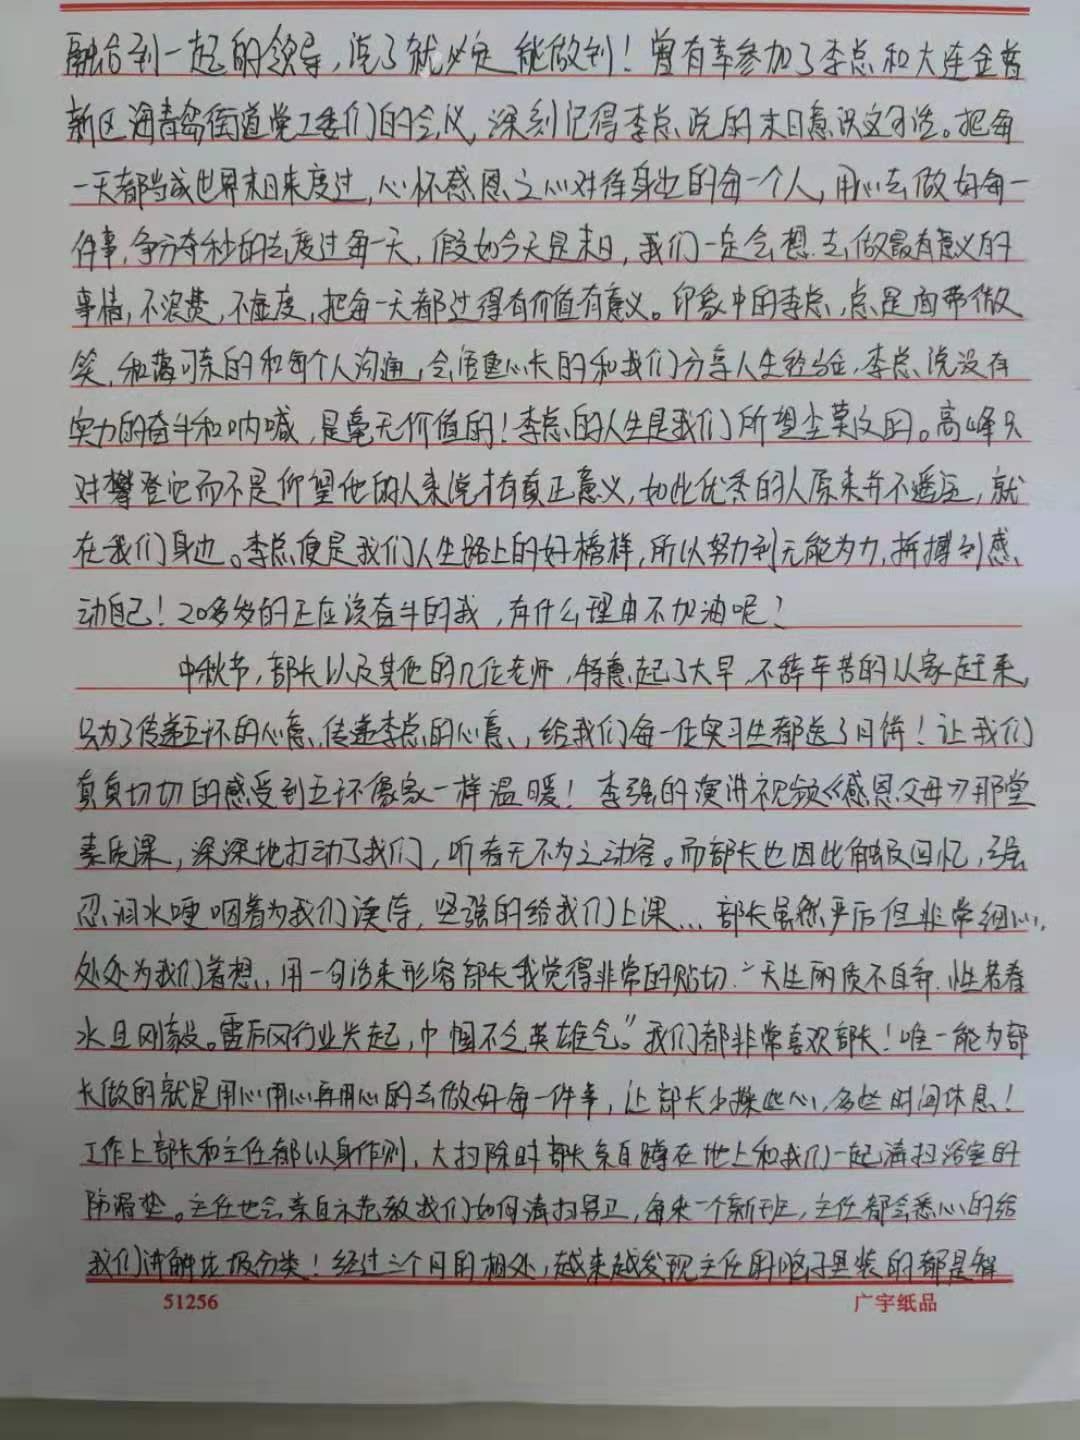 融合到一起的领导，说了就必定能做到！曾有幸参加了李总和大连金普
新区海青岛街道党工委们的会议，深刻记得李总说的末日意识这句话。把每
一天都当成世界末日来度过，心怀感恩之心对待身边的每一个人，用心去做好每一
件事，争分夺秒的去度过每一天，假如今天是末日，我们一定会想去做最有意义的
事情，不浪费，不虚度，把每一天都过得有价值有意义。印象中的李总，总是面带微
笑，和蔼可亲的和每个人沟通，会语重心长的和我们分享人生经验，李总说没有
实力的奋斗和呐喊，是毫无价值的！李总的人生是我们所望尘莫及的。高峰只
对攀登它而不是仰望他的人来说才有真正意义，如此优秀的人原来并不遥远，就
在我们身边。李总便是我们人生路上的好榜样，所以努力到无能为力，拼搏到感
动自己！20多岁的正应该奋斗的我，有什么理由不加油呢？
中秋节，部长以及其他的几位老师，特意起了大早，不辞辛苦的从家赶来，
只为了传递五环的心意，传递李总的心意，给我们每一位实习生都送了月饼！让我们
真真切切的感受到五环像家一样温暖！李强的演讲视频《感恩父母》那堂
素质课，深深地打动了我们，听者无不为之动容。而部长也因此触及回忆，强
忍泪水哽咽着为我们读信，坚强的给我们上课...部长虽然严厉但非常细心，
处处为我们着想，用一句话来形容部长我觉得非常的贴切“天生丽质不自弃，性若春
水且刚毅。雷厉风行业关起，巾帼不乏英雄气。”我们都非常喜欢部长！唯一能为部
长做的就是用心用心再用心的去做好每一件事，让部长少操些心，多些时间休息！
工作上部长和主任都以身作则，大扫除时部长亲自蹲在地上和我们一起清扫浴室的
防滑垫。主任也会亲自示范教我们如何清扫男卫，每来一个新班，主任都会悉心的给
我们讲解垃圾分类！经过三个月的相处，越来越发现主任的脑子里装的都是智
51256
广宇纸品